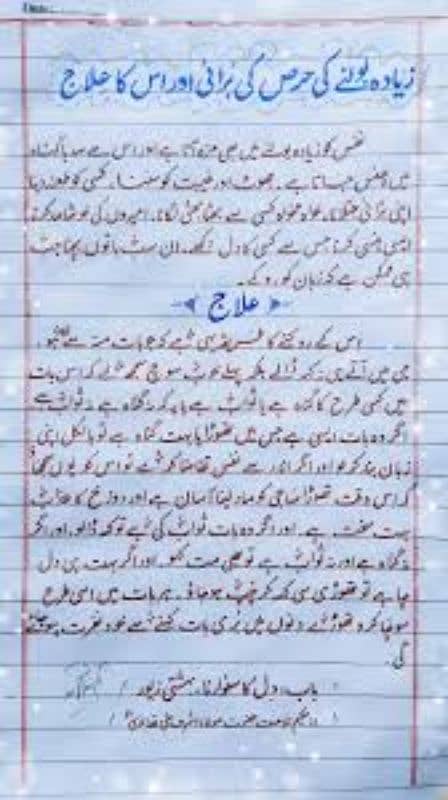 زیادہ بولنے کی حرص کی برائی اور اس کا علاج
نفس کو زیادہ بولنے میں بھی مزہ آتا ہے اور اس سے صدہا گناہ
میں پھنس جاتا ہے۔ جھوٹ اور غیبت کوسنا، کسی کو طعنہ دینا
اپنی بڑائی جتلانا، خواہ مخواہ کسی سے بحثا بحثی لگانا۔ امیروں کی خوشامد کرنا
ایسی ہنسی کرنا جس سے کسی کا دل دکھے۔ ان سب باتوں بچنا جب
ہی ممکن ہے کہ زبان کو روکے۔
علاج
اس کے روکنے کا طریقہ یہی ہے کہ جو بات منہ سے
جی میں آتے ہی نہ کہہ ڈالے بلکہ پہلے خوب سوچ سمجھ لے کہ اس بات
میں کسی طرح کا گناہ ہے یا ثواب ہے یا یہ کہ نہ گناہ ہے نہ ثواب ہے
اگر وہ بات ایسی ہے جس میں تھوڑا یا بہت گناہ ہے تو بالکل اپنی
زبان بند کر لو اور اگر اندر سے نفس تقاضا کرے تو اس کو یوں
کہ اس وقت تھوڑا سا جی کو مار لینا آسان ہے اور دوزخ کا عذاب
بہت سخت ہے۔ اور اگر وہ بات ثواب کی ہے تو کہہ ڈالو اور اگر
نہ گناہ ہے اور نہ ثواب ہے تو بھی مت کہو۔ اور اگر بہت ہی دل
چاہے تو تھوڑی سی کہہ کر چپ ہو جاؤ۔ ہر بات میں اسی طرح
سوچا کرو تھوڑے دنوں میں بری بات کہنے سے خود نفرت ہو جائے
گی۔
باب، دل کا سنوارنا، بہشتی زیور
حکیم الامت حضرت مولانا اشرف علی تھانوی